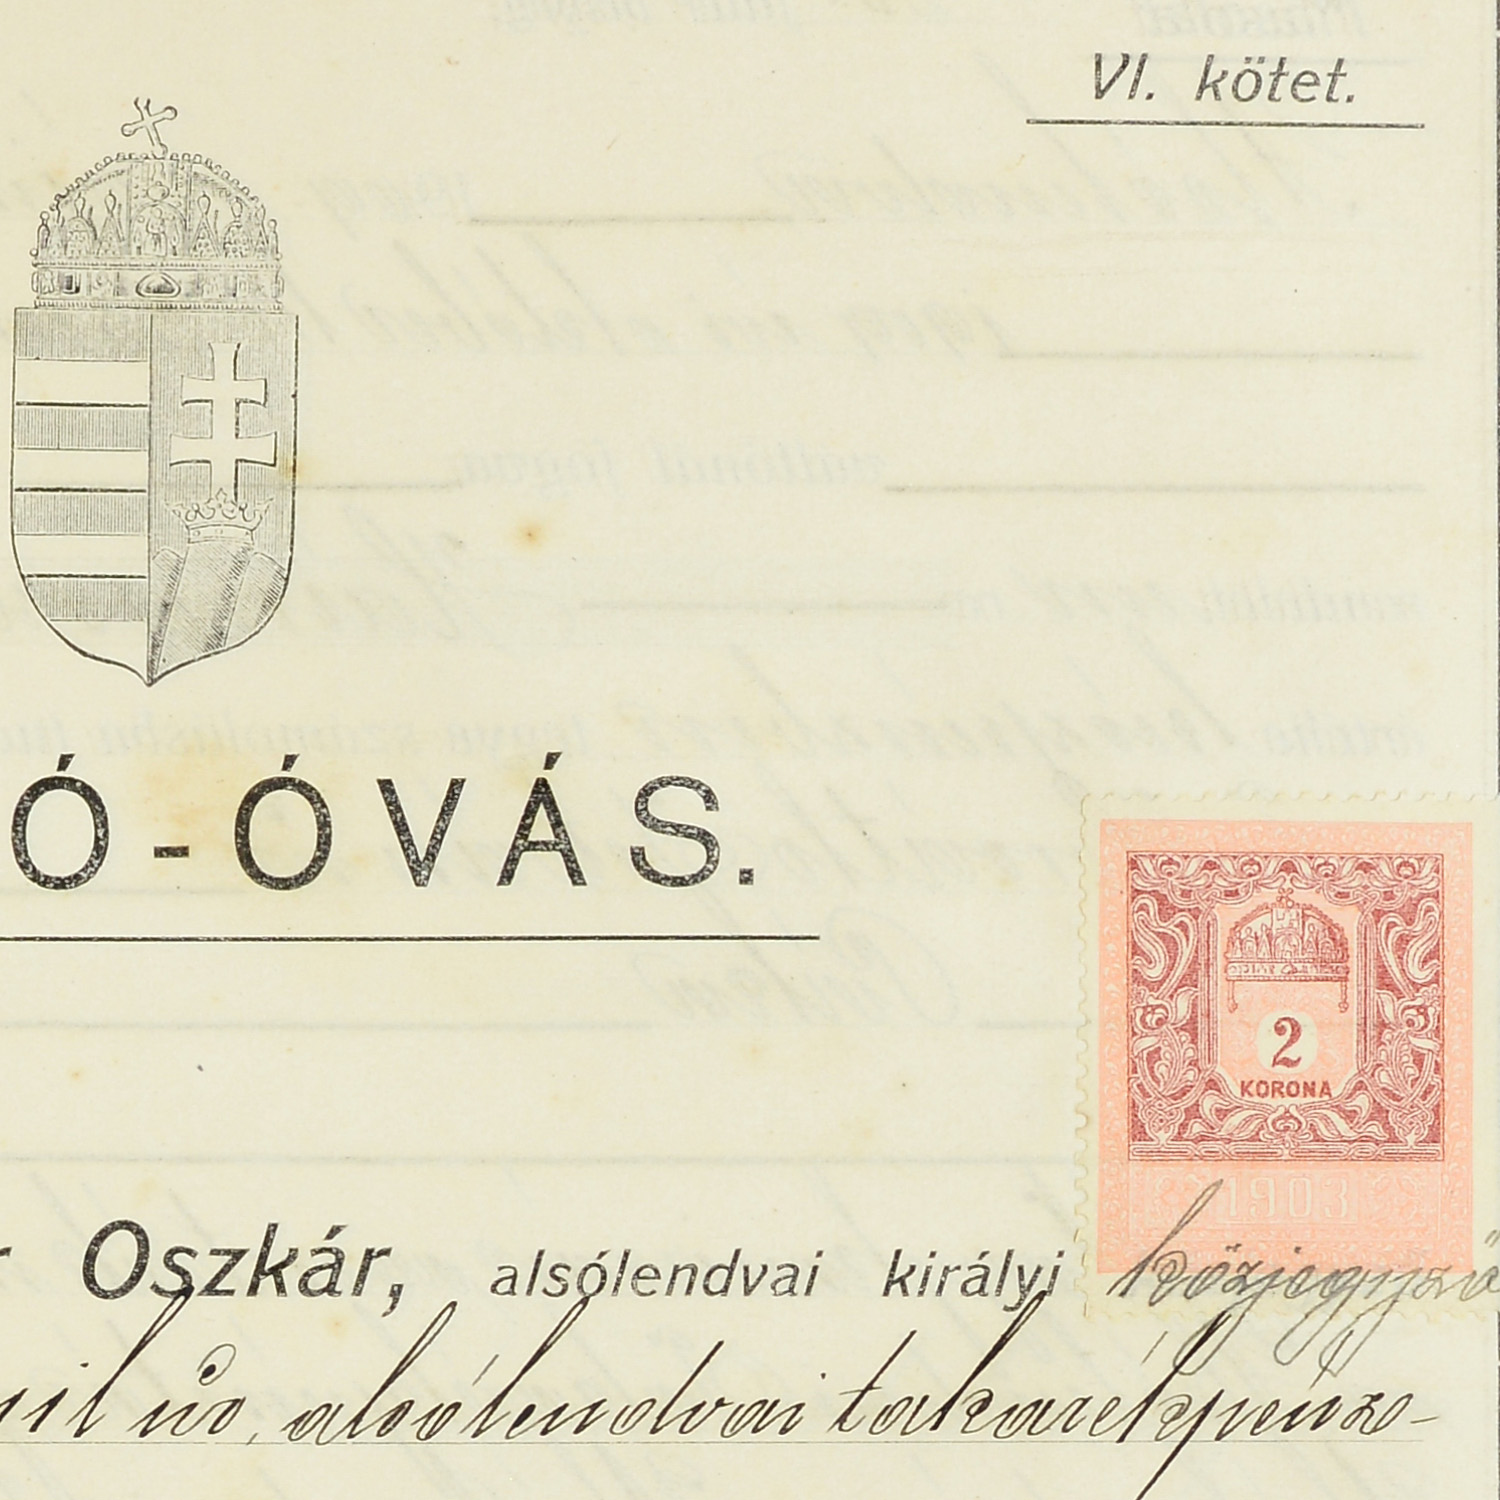 VI. kötet.
Ó-ÓVÁS.
2
KORONA
1903
r Oszkár, alsólendvai királyi közjegyző
úr, alsólendvai takarékpénz-